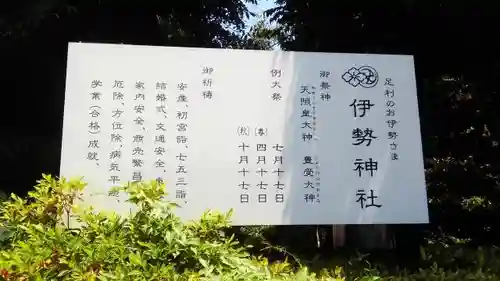 足利のお伊勢さま
伊勢神社
御祭神
天照皇大神
豊受大神
例大祭
七月十七日
(春) 四月十七日
(秋) 十月十七日
御祈祷
安産、初宮詣、七五三詣、
結婚式、交通安全、
家内安全、商売繁昌
厄除、方位除、病気平癒、
学業(合格)成就、